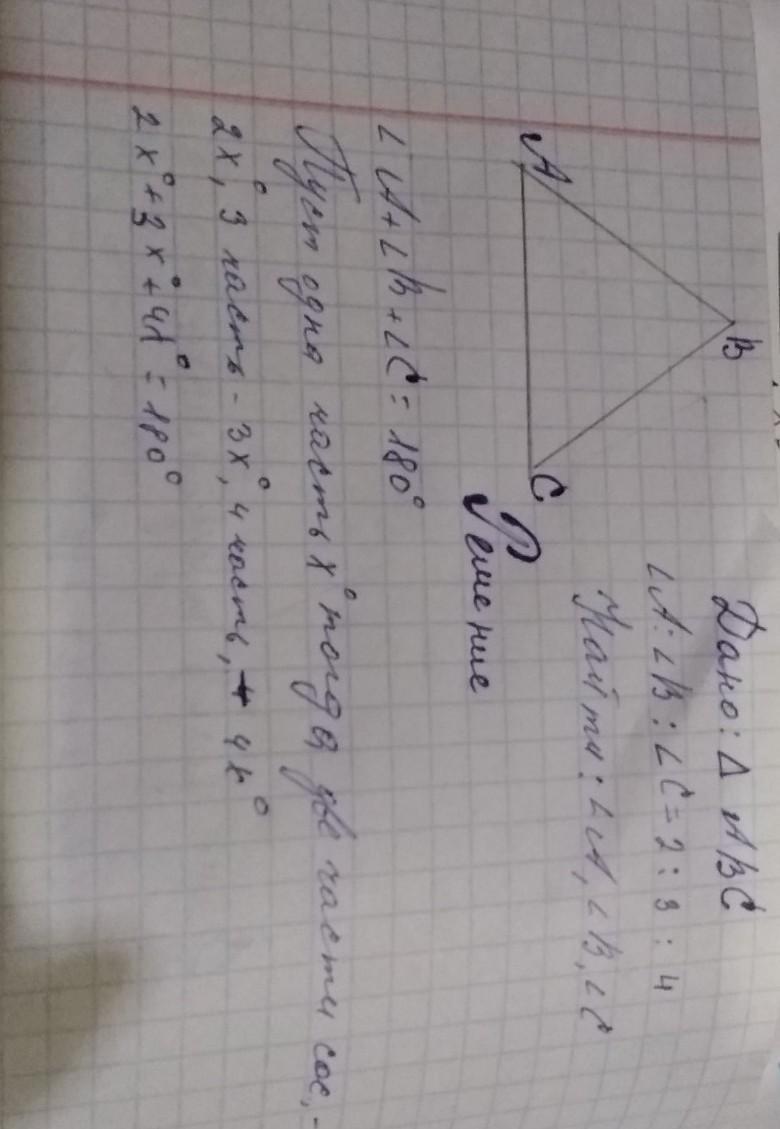 Дано: Δ ABC
∠A:∠B:∠C=2:3:4
Найти: ∠A,∠B,∠C
B
A
C
Решение
∠A+∠B+∠C=180°
Пуст одна часть x° тогда две части сос,-
2x°, 3 часть - 3x°, 4 часть, 4x°
2x°+3x°+4x°=180°